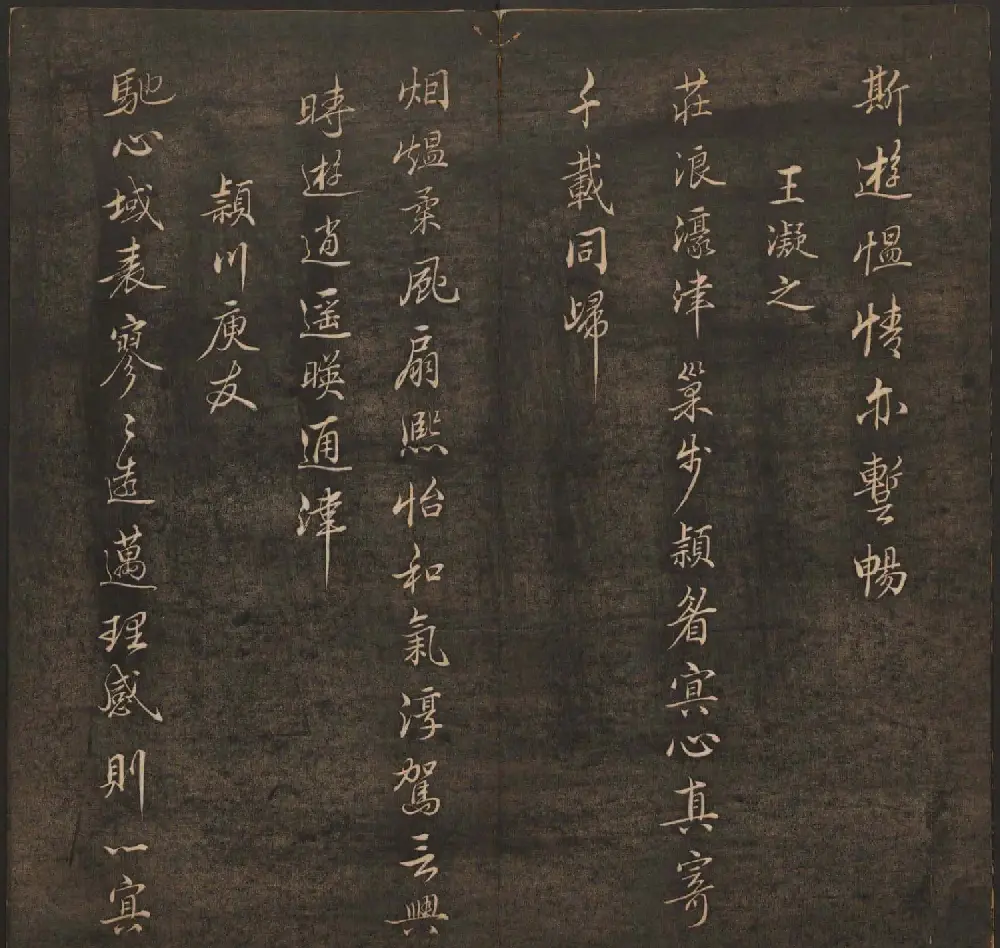 斯遊愠情亦暫暢
王凝之
莊浪濠津巢步潁湄冥心真寄
千載同歸
烟熅柔風扇熈怡和氣淳駕言興
時遊逍遥暎通津
潁川庾友
馳心域表寥〻遠邁理感則一冥